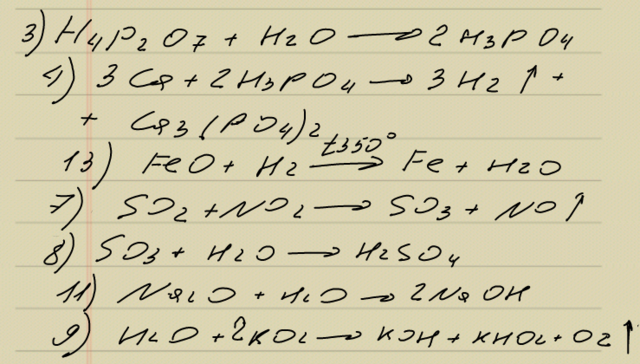 3) H4P2O7 + H2O → 2H3PO4
4) 3Ca + 2H3PO4 → 3H2↑ +
+ Ca3(PO4)2
13) FeO + H2 t350° → Fe + H2O
7) SO2 + NO2 → SO3 + NO↑
8) SO3 + H2O → H2SO4
11) Na2O + H2O → 2NaOH
9) H2O + 2KO2 → KOH + KHO2 + O2↑